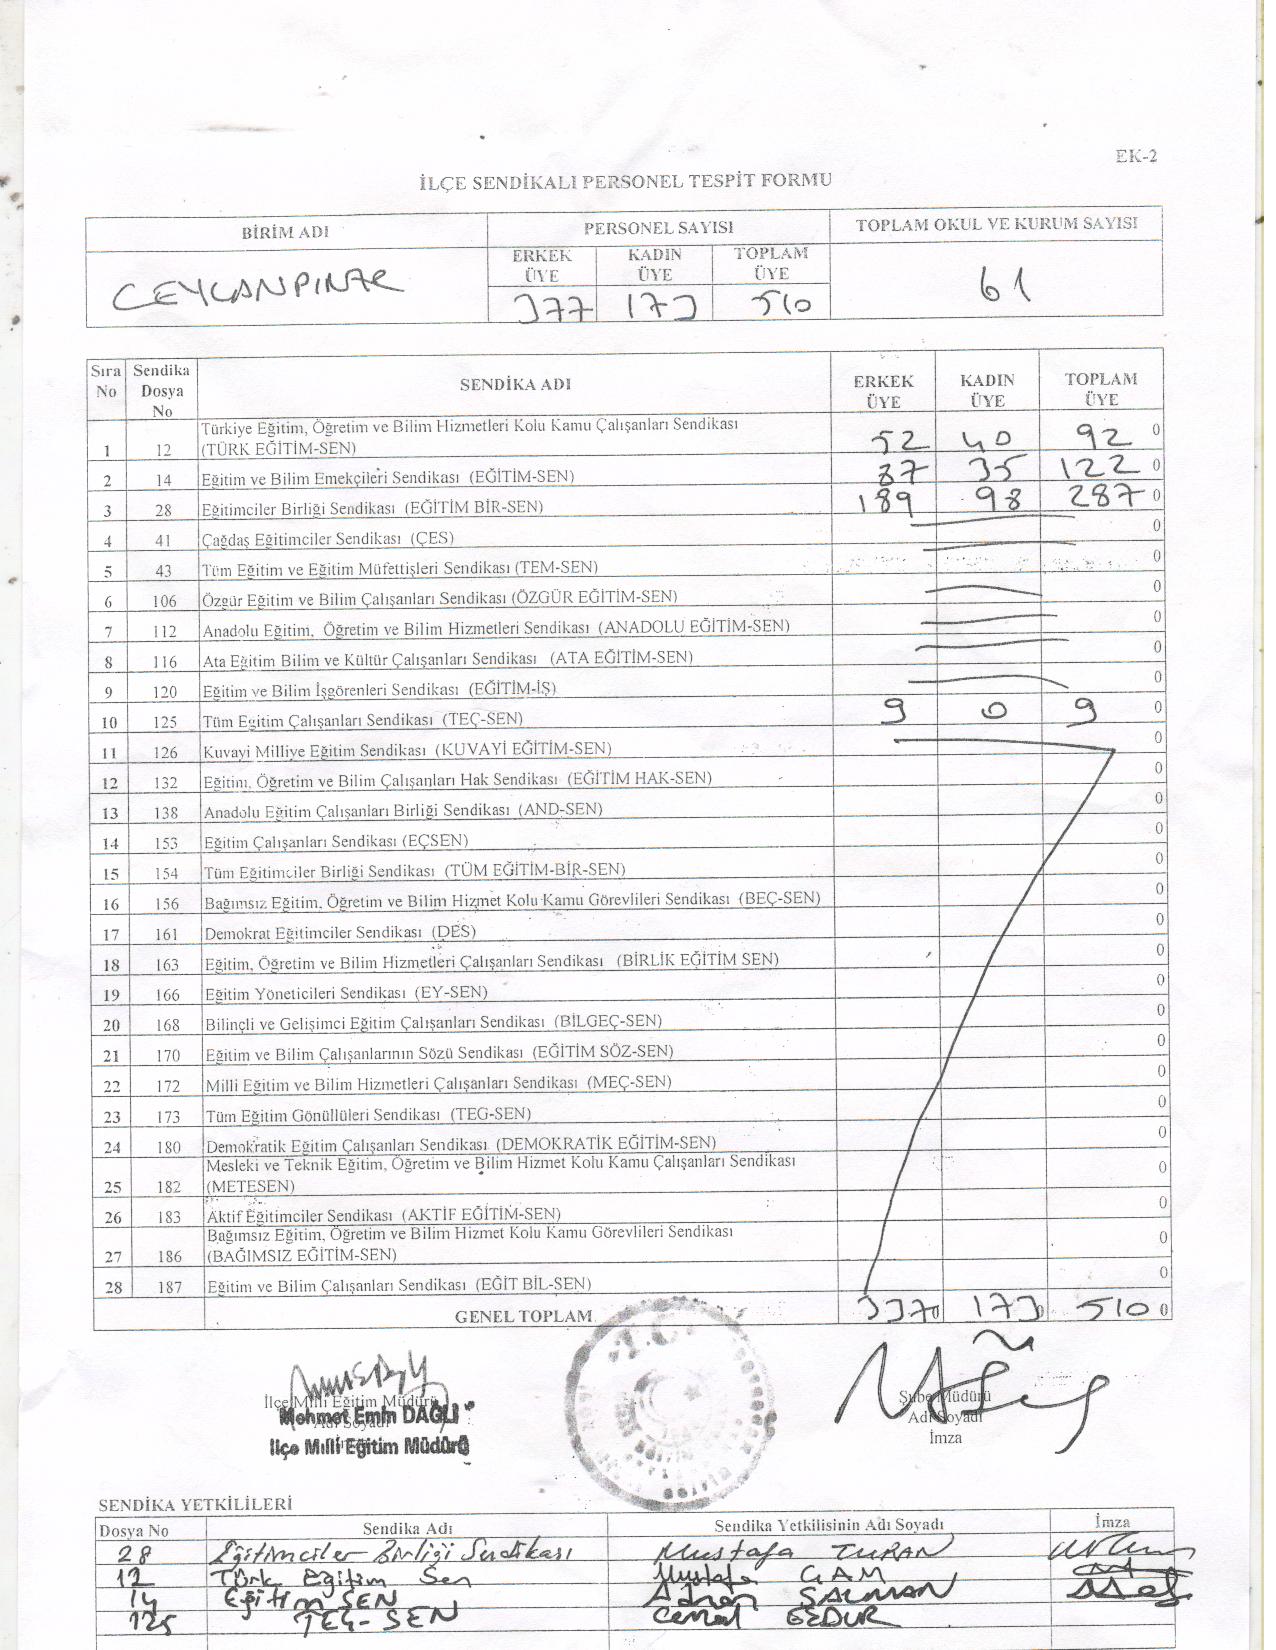 EK-2
İLÇE SENDİKALI PERSONEL TESPİT FORMU
BİRİM ADI PERSONEL SAYISI TOPLAM OKUL VE KURUM SAYISI
ERKEK ÜYE KADIN ÜYE TOPLAM ÜYE
CEYLANPINAR 377 173 510 61
Sıra No Sendika Dosya No SENDİKA ADI ERKEK ÜYE KADIN ÜYE TOPLAM ÜYE
Türkiye Eğitim, Öğretim ve Bilim Hizmetleri Kolu Kamu Çalışanları Sendikası
1 12 (TÜRK EĞİTİM-SEN) 52 40 92 0
2 14 Eğitim ve Bilim Emekçileri Sendikası (EĞİTİM-SEN) 87 35 122 0
3 28 Eğitimciler Birliği Sendikası (EĞİTİM BİR-SEN) 189 98 287 0
4 41 Çağdaş Eğitimciler Sendikası (ÇES) 0
5 43 Tüm Eğitim ve Eğitim Müfettişleri Sendikası (TEM-SEN) 0
6 106 Özgür Eğitim ve Bilim Çalışanları Sendikası (ÖZGÜR EĞİTİM-SEN) 0
7 112 Anadolu Eğitim, Öğretim ve Bilim Hizmetleri Sendikası (ANADOLU EĞİTİM-SEN) 0
8 116 Ata Eğitim Bilim ve Kültür Çalışanları Sendikası (ATA EĞİTİM-SEN) 0
9 120 Eğitim ve Bilim İşgörenleri Sendikası (EĞİTİM-İŞ) 0
10 125 Tüm Eğitim Çalışanları Sendikası (TEÇ-SEN) 9 0 9 0
11 126 Kuvayi Milliye Eğitim Sendikası (KUVAYİ EĞİTİM-SEN) 0
12 132 Eğitim, Öğretim ve Bilim Çalışanları Hak Sendikası (EĞİTİM HAK-SEN) 0
13 138 Anadolu Eğitim Çalışanları Birliği Sendikası (AND-SEN) 0
14 153 Eğitim Çalışanları Sendikası (EÇSEN) 0
15 154 Tüm Eğitimciler Birliği Sendikası (TÜM EĞİTİM-BİR-SEN) 0
16 156 Bağımsız Eğitim, Öğretim ve Bilim Hizmet Kolu Kamu Görevlileri Sendikası (BEÇ-SEN) 0
17 161 Demokrat Eğitimciler Sendikası (DES) 0
18 163 Eğitim, Öğretim ve Bilim Hizmetleri Çalışanları Sendikası (BİRLİK EĞİTİM SEN) 0
19 166 Eğitim Yöneticileri Sendikası (EY-SEN) 0
20 168 Bilinçli ve Gelişimci Eğitim Çalışanları Sendikası (BİLGEÇ-SEN) 0
21 170 Eğitim ve Bilim Çalışanlarının Sözü Sendikası (EĞİTİM SÖZ-SEN) 0
22 172 Milli Eğitim ve Bilim Hizmetleri Çalışanları Sendikası (MEÇ-SEN) 0
23 173 Tüm Eğitim Gönüllüleri Sendikası (TEG-SEN) 0
24 180 Demokratik Eğitim Çalışanları Sendikası (DEMOKRATİK EĞİTİM-SEN) 0
Mesleki ve Teknik Eğitim, Öğretim ve Bilim Hizmet Kolu Kamu Çalışanları Sendikası
25 182 (METESEN) 0
26 183 Aktif Eğitimciler Sendikası (AKTİF EĞİTİM-SEN) 0
Bağımsız Eğitim, Öğretim ve Bilim Hizmet Kolu Kamu Görevlileri Sendikası
27 186 (BAĞIMSIZ EĞİTİM-SEN) 0
28 187 Eğitim ve Bilim Çalışanları Sendikası (EĞİT BİL-SEN) 0
GENEL TOPLAM 337 0 173 0 510 0
T.C.
İlçe Milli Eğitim Müdürü Şube Müdürü
Mehmet Emin DAĞLI Adı Soyadı
İlçe Milli Eğitim Müdürü İmza
SENDİKA YETKİLİLERİ
Dosya No Sendika Adı Sendika Yetkilisinin Adı Soyadı İmza
28 Eğitimciler Birliği Sendikası Mustafa TURAN
12 Türk Eğitim Sen Mustafa ÇAM
14 Eğitim SEN Adnan SALMAN
125 TEÇ-SEN Cemal